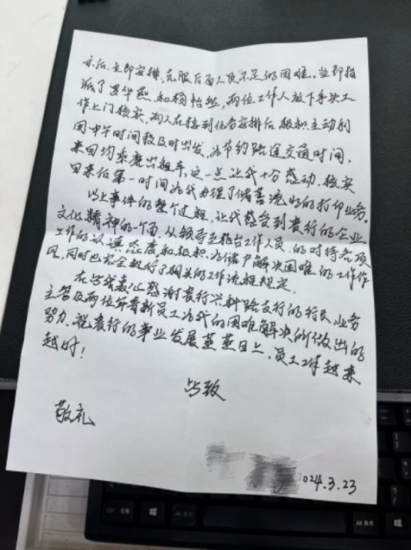 示后立即安排,克服后面人员不足的困难。立即指
派了黄华燕和杨怡然,两位工作人放下手头工
作上门核实,两人在接到任务安排后积极主动利
用中午时间放及时出发,为节约路途交通时间,
来回均乘座出租车,这一点让我十分感动,核实
回来后第一时间为我办理了储蓄流水的打印业务。
以上事件的整个过程,让我感受到贵行的企业
文化精神的一个面,从领导至柜台工作人员的对待各项
工作的认真态度和积极为储户解决困难的工作作
风,同时也完全执行了相关的工作流程规定。
在此我衷心感谢贵行兴科路支行的行长、业务
主管及两位年青新员工为我的困难解决所做出的
努力。祝贵行的事业发展蒸蒸日上,员工工作越来
越好!
此致
敬礼
2024.3.23